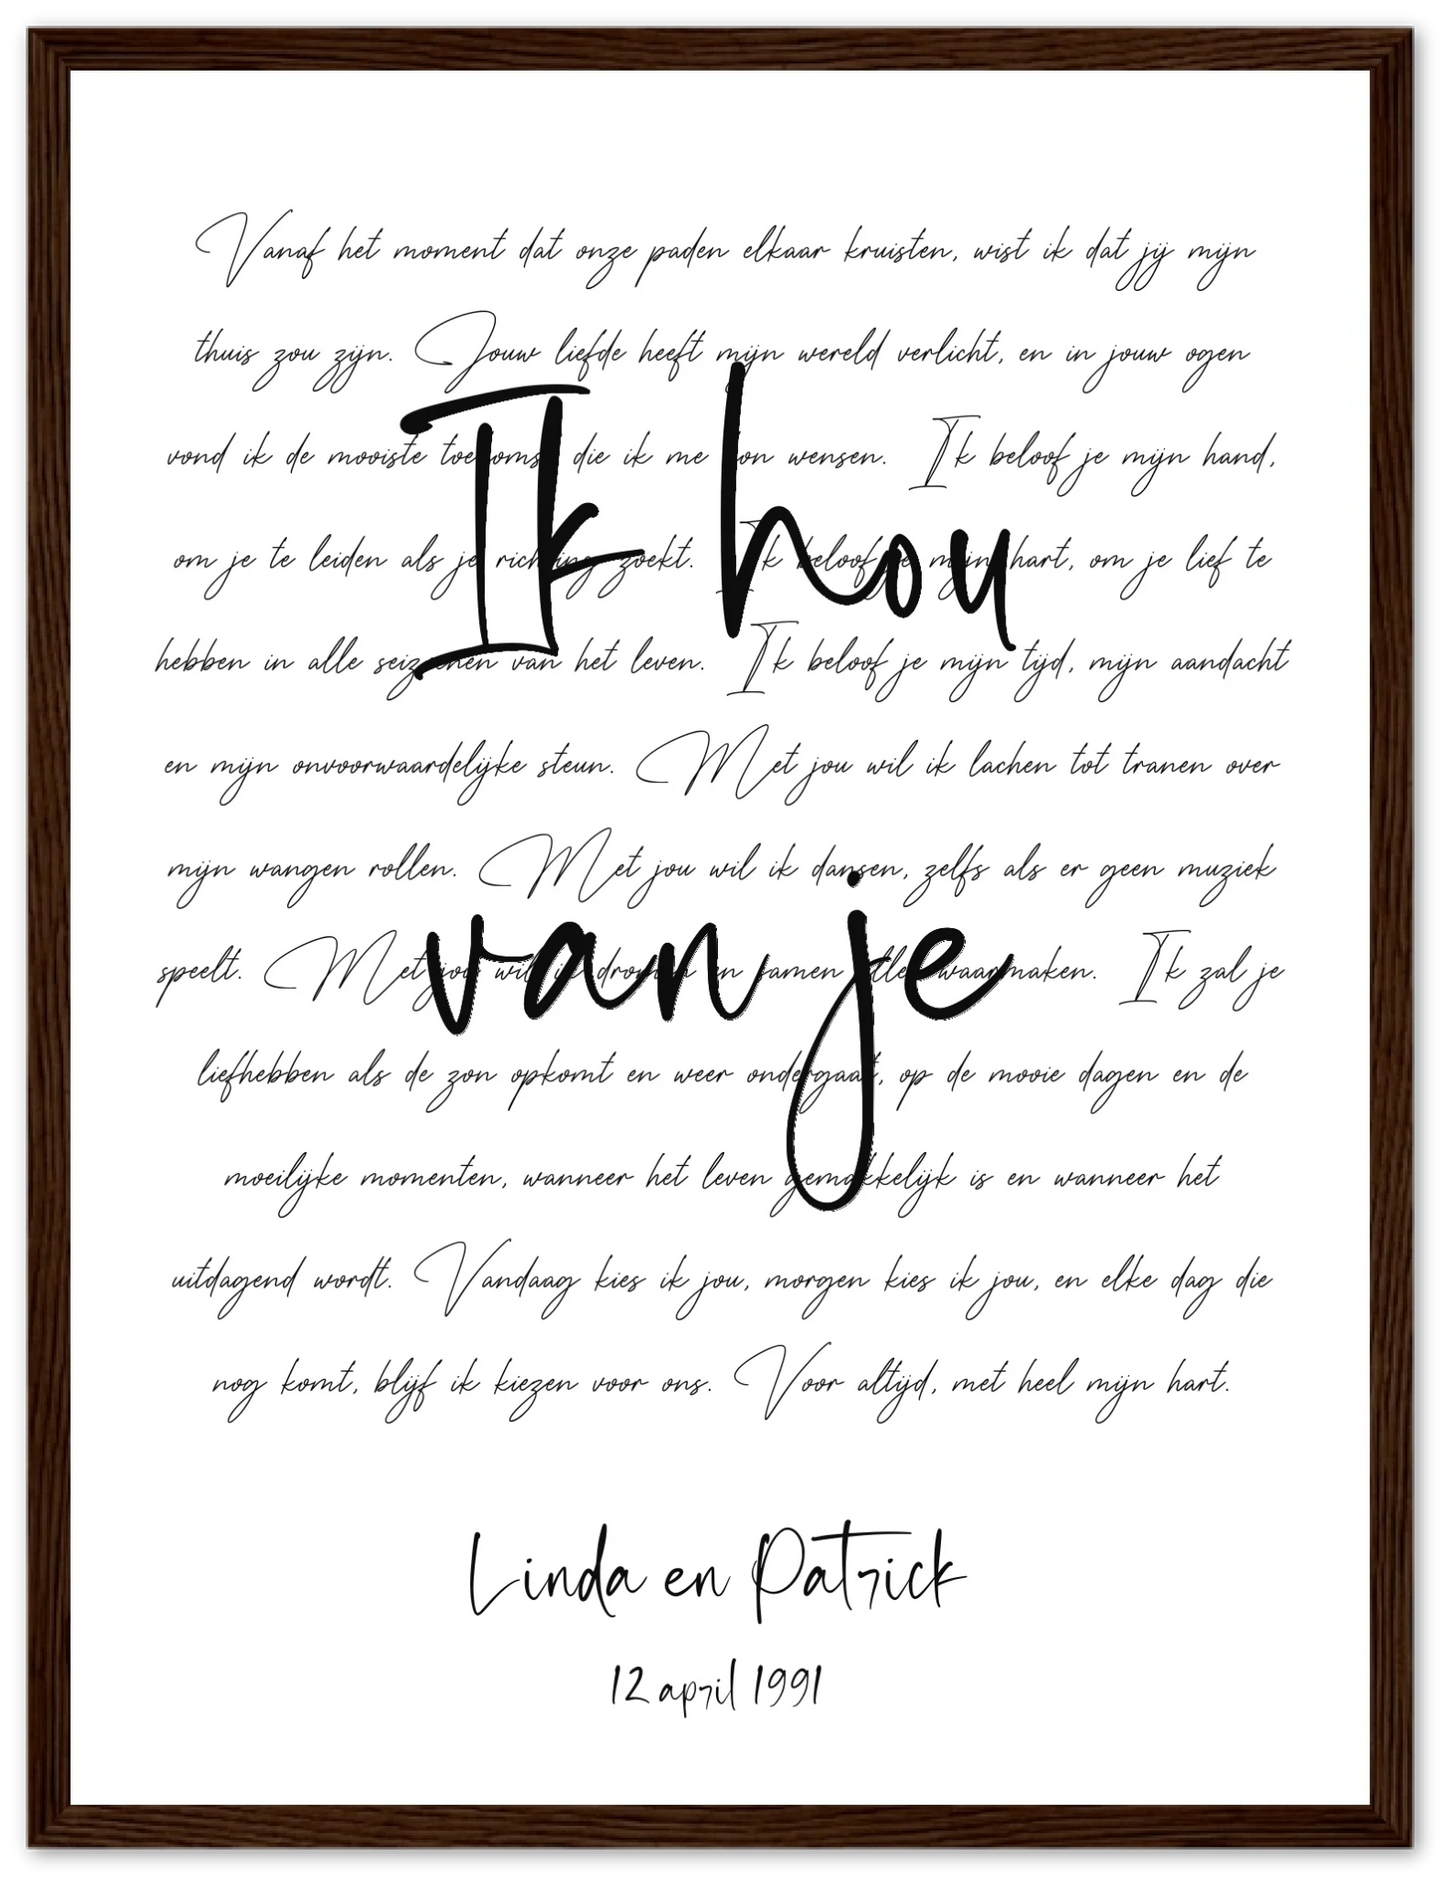 Vanaf het moment dat onze paden elkaar kruisten, wist ik dat jij mijn
thuis zou zijn. Jouw liefde heeft mijn wereld verlicht, en in jouw ogen
vond ik de mooiste toekomst die ik me kon wensen. Ik beloof je mijn hand,
Ik hou
om je te leiden als je richting zoekt. Ik beloof je mijn hart, om je lief te
hebben in alle seizoenen van het leven. Ik beloof je mijn tijd, mijn aandacht
en mijn onvoorwaardelijke steun. Met jou wil ik lachen tot tranen over
mijn wangen rollen. Met jou wil ik dansen, zelfs als er geen muziek
van je
speelt. Met jou wil ik dromen en samen alles waarmaken. Ik zal je
liefhebben als de zon opkomt en weer ondergaat, op de mooie dagen en de
moeilijke momenten, wanneer het leven gemakkelijk is en wanneer het
uitdagend wordt. Vandaag kies ik jou, morgen kies ik jou, en elke dag die
nog komt, blijf ik kiezen voor ons. Voor altijd, met heel mijn hart.
Linda en Patrick
12 april 1991